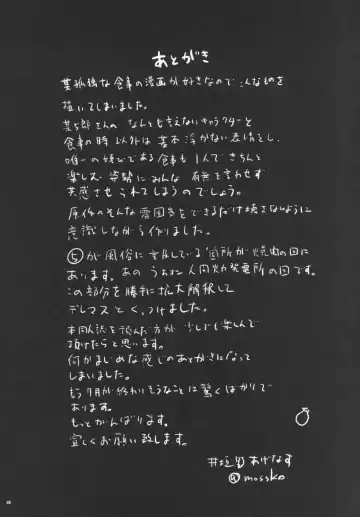 あとがき
某孤独な食事の漫画が好きなのでこんなものを
描いてしまいました。
某五郎さんのなんとも言えないキャラクターと
食事の時以外は若干浮かない表情をし、
唯一の娯しみである食事も1人できちんと
楽しむ姿勢にみんな有無を言わせず
共感させられてしまうのでしょう。
原作のそんな雰囲気をできるだけ壊さないように
意識しながら作りました。
⑤が風俗に言及している箇所が焼肉の回に
あります。あのうおォン人間火力発電所の回です。
この部分を勝手に拡大解釈して
デレマスとくっつけました。
本同人誌を読んだ方が少しでも楽しんで
頂けたらと思います。
何かまじめな感じのあとがきになって
しまいました。
もう7月が終わりそうなことに驚くばかりで
あります。
もっとがんばります。
宜しくお願い致します。
あげなす
@mossko